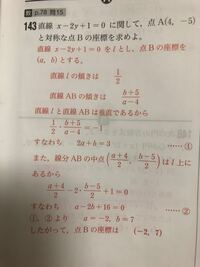 教 p.78 問15
143 直線 x-2y+1=0 に関して, 点A(4, -5)
と対称な点Bの座標を求めよ。
直線 x-2y+1=0 を l とし, 点Bの座標を
(a, b) とする。
直線 l の傾きは 1/2
直線 AB の傾きは (b+5)/(a-4)
直線 l と直線 AB は垂直であるから
1/2・(b+5)/(a-4)=-1
すなわち 2a+b=3 ……①
また, 線分 AB の中点 ((a+4)/2, (b-5)/2) は l 上に
あるから
(a+4)/2-2・(b-5)/2+1=0
すなわち a-2b+16=0 ……②
①, ② より a=-2, b=7
したがって, 点Bの座標は (-2, 7)